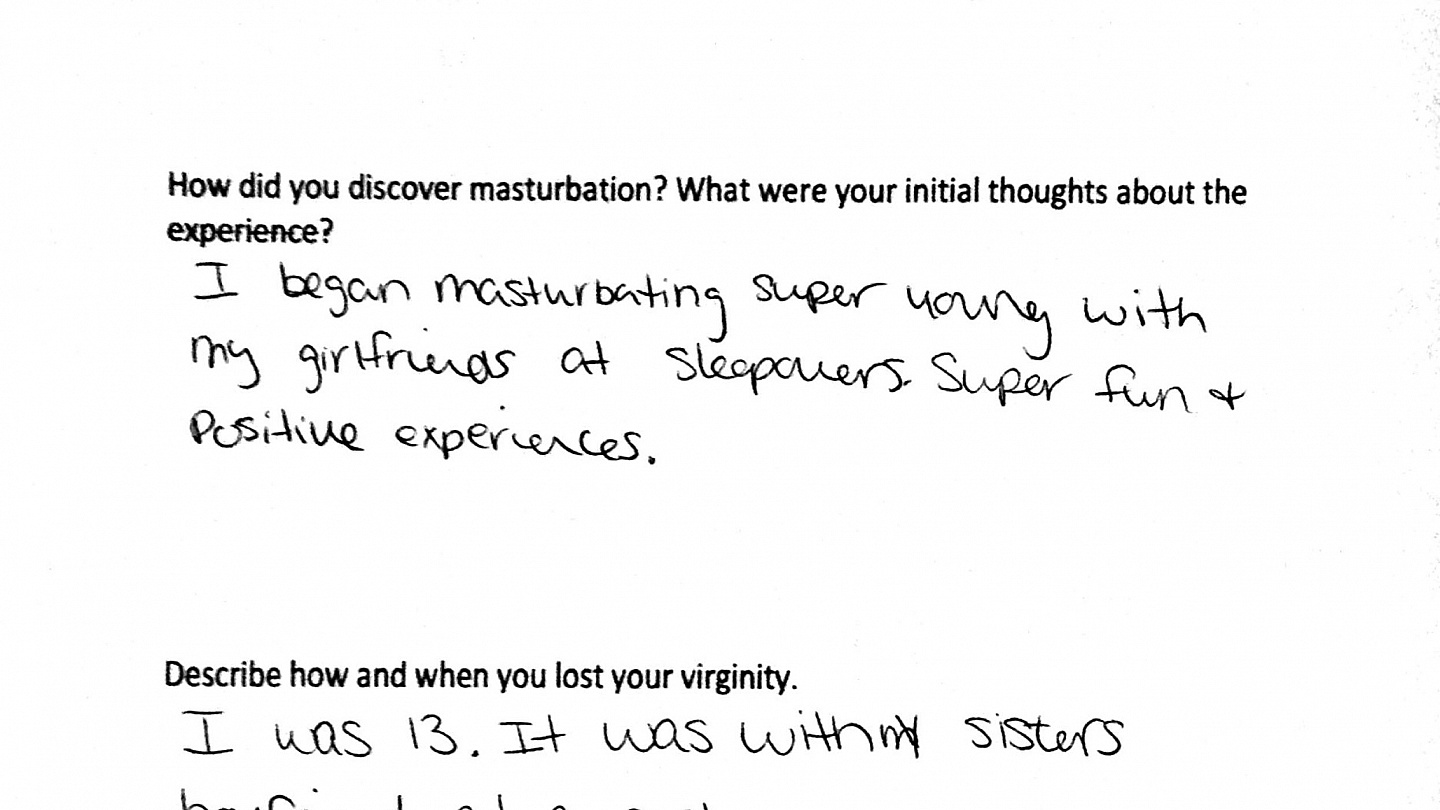 How did you discover masturbation? What were your initial thoughts about the
experience?
I began masturbating super young with
my girlfriends at sleepovers. Super fun &
positive experiences.
Describe how and when you lost your virginity.
I was 13. It was with my sisters